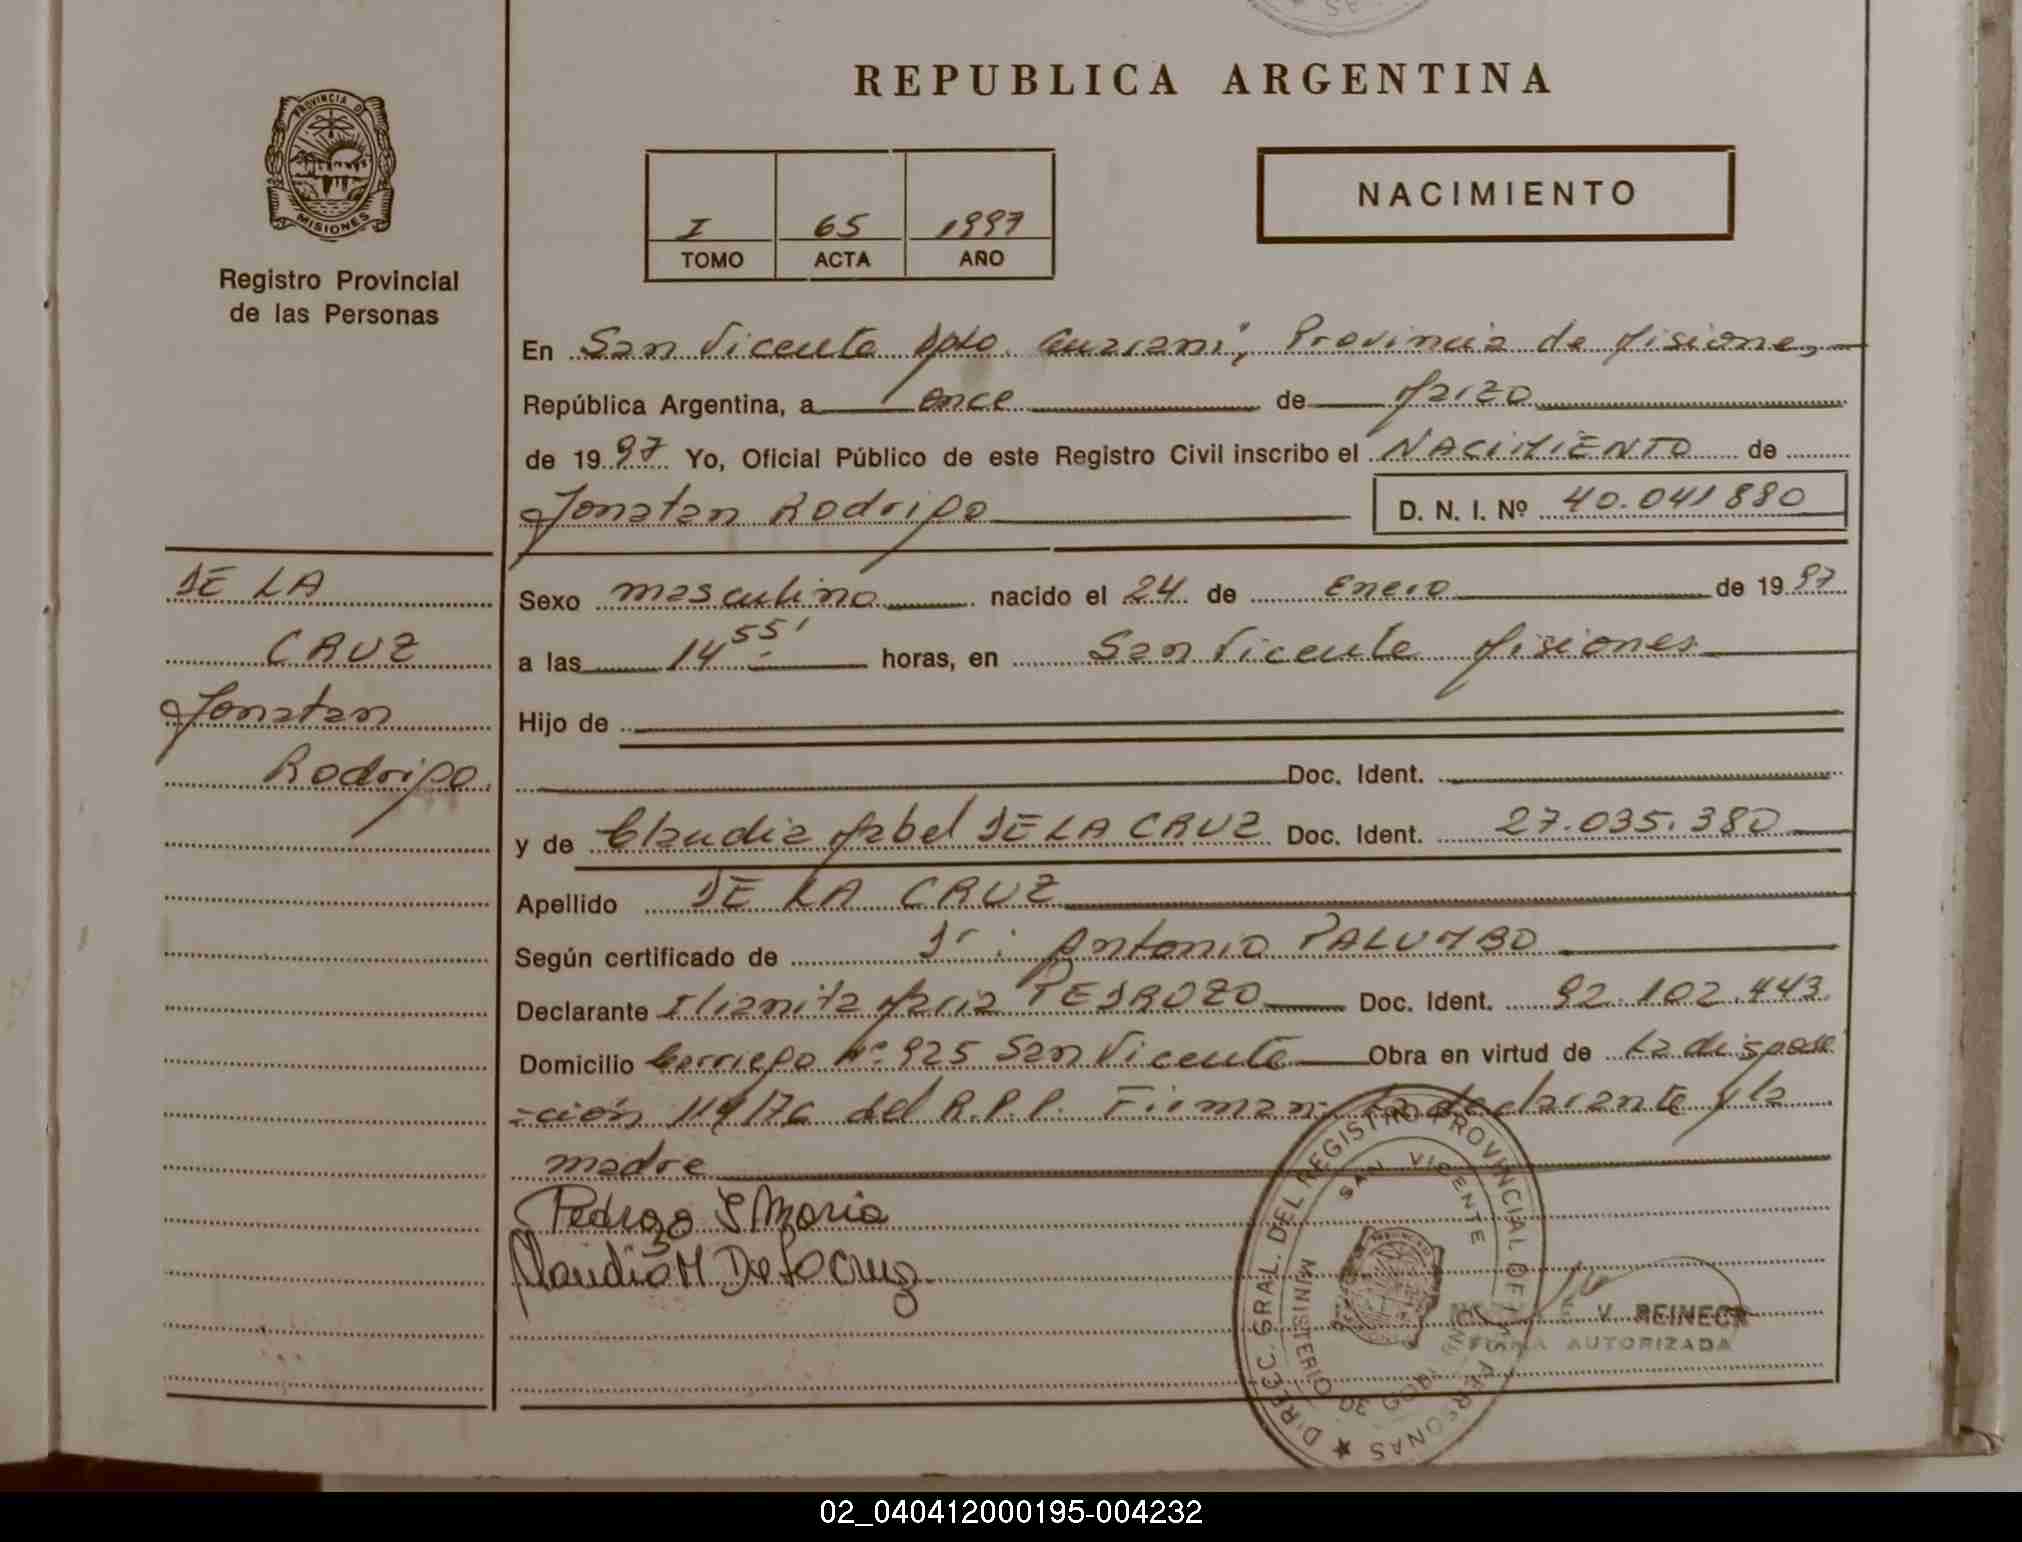 REPUBLICA ARGENTINA
PROVINCIA DE
MISIONES
Registro Provincial
de las Personas
I 65 1997
TOMO ACTA AÑO
NACIMIENTO
En San Vicente Dpto. Guarani, Provincia de Misiones
República Argentina, a once de Marzo
de 1997 Yo, Oficial Público de este Registro Civil inscribo el NACIMIENTO de
Jonatan Rodrigo D. N. I. Nº 40.041880
DE LA
CRUZ
Jonatan
Rodrigo.
Sexo masculino nacido el 24 de Enero de 1997
a las 14 55' horas, en San Vicente Misiones
Hijo de
Doc. Ident.
y de Claudia Mabel DE LA CRUZ Doc. Ident. 27.035.380
Apellido DE LA CRUZ
Según certificado de Dr: Antonio PALUMBO
Declarante Ilianita Maria PEDROZO Doc. Ident. 92.102.443
Domicilio Borriego Nº 925 San Vicente Obra en virtud de La dispose
=ción 119/76 del R.P.P. Firman: La declarante y la
madre
Pedrozo I Maria
Claudia M De La Cruz
DIREC. GRAL. DEL REGISTRO PROVINCIAL DE LAS PERSONAS
SAN VICENTE
MINISTERIO DE GOBIERNO
V. REINECK
FIRMA AUTORIZADA
02_040412000195-004232